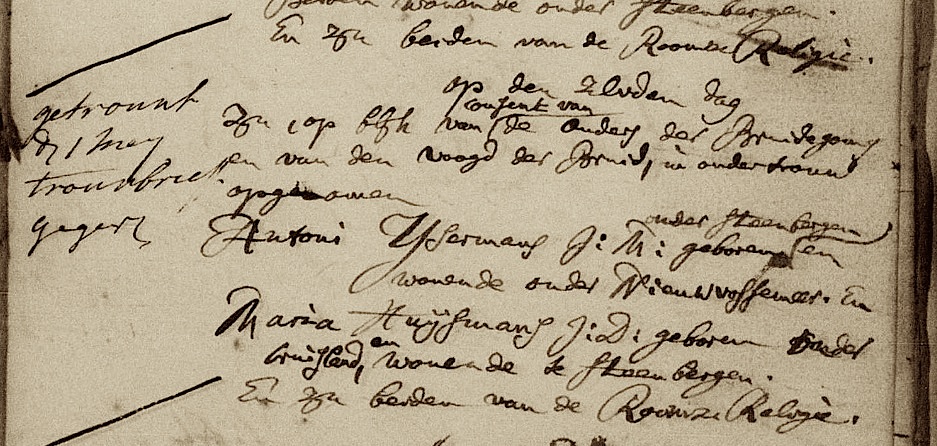 wonende onder Steenbergen.
En zijn beiden van de Roomze Religie.
op den zlvden dag
getrouwt
d' 1 Mey
trouwbrief
gegeven
consent van
Zijn, op blijk van de ouders des Bruidegoms
en van den voogd der Bruid, in ondertrouw
opgenomen
onder Steenbergen
Antoni Ysermans J: M: geboren en
wonende onder Nieuwvossemeer. En
Maria Huijsmans J: D: geboren onder
Cruisland, en wonende te Steenbergen.
En zijn beiden van de Roomze Religie.